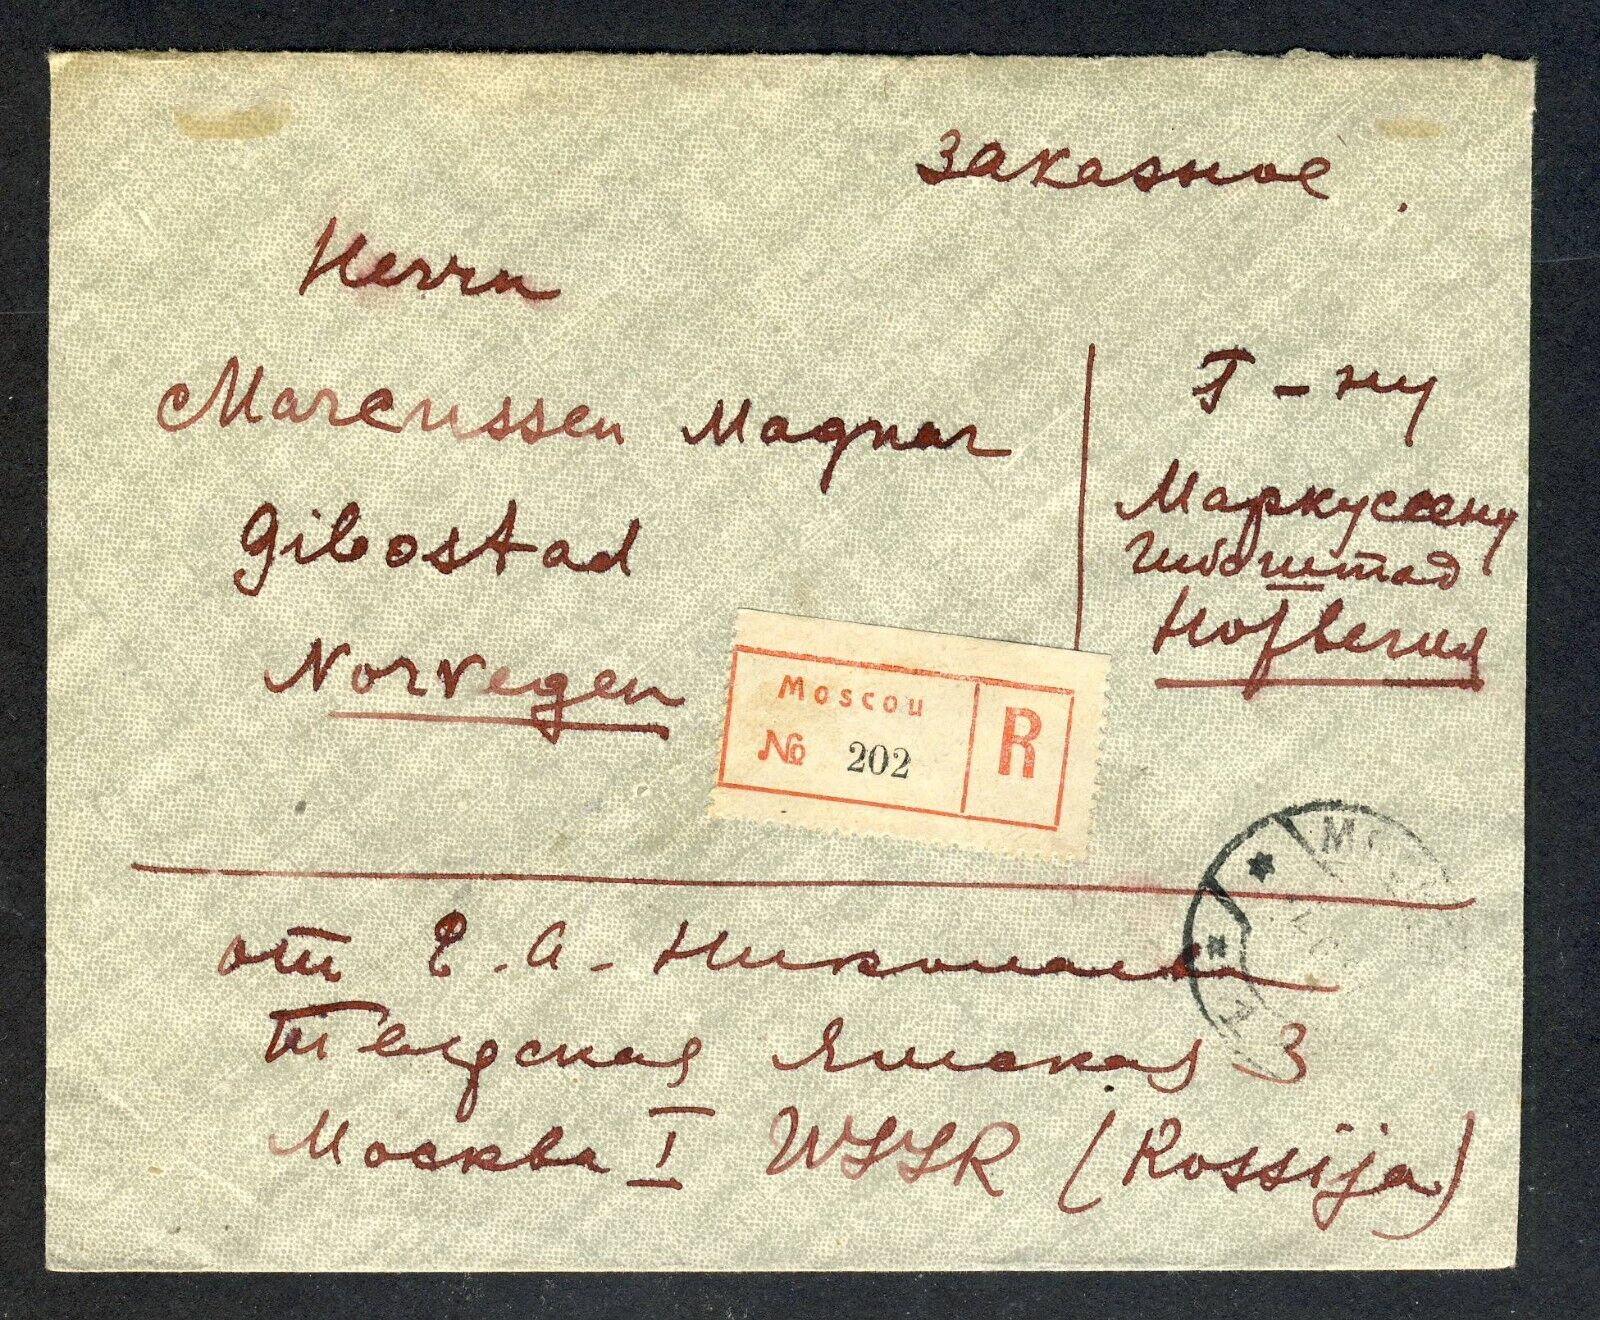 Заказное.
Herrn
Marcussen Magnar
Gibostad
Norvegen
Г-ну
Маркуссену
Гибоштад
Норвегия
Moscou
№ 202
R
от Е. А. Николаева
Ямская 3
Москва I WSSR (Rossija)